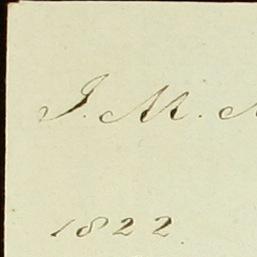 J. M.
1822.